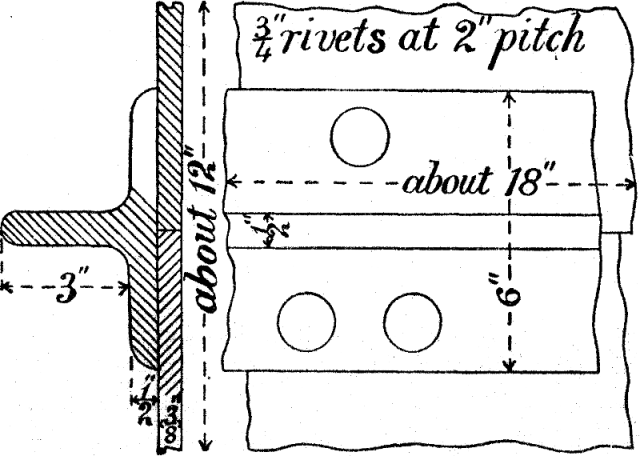 3/4" rivets at 2" pitch
about 12"
about 18"
1/2"
3"
6"
1/2"
3/8"